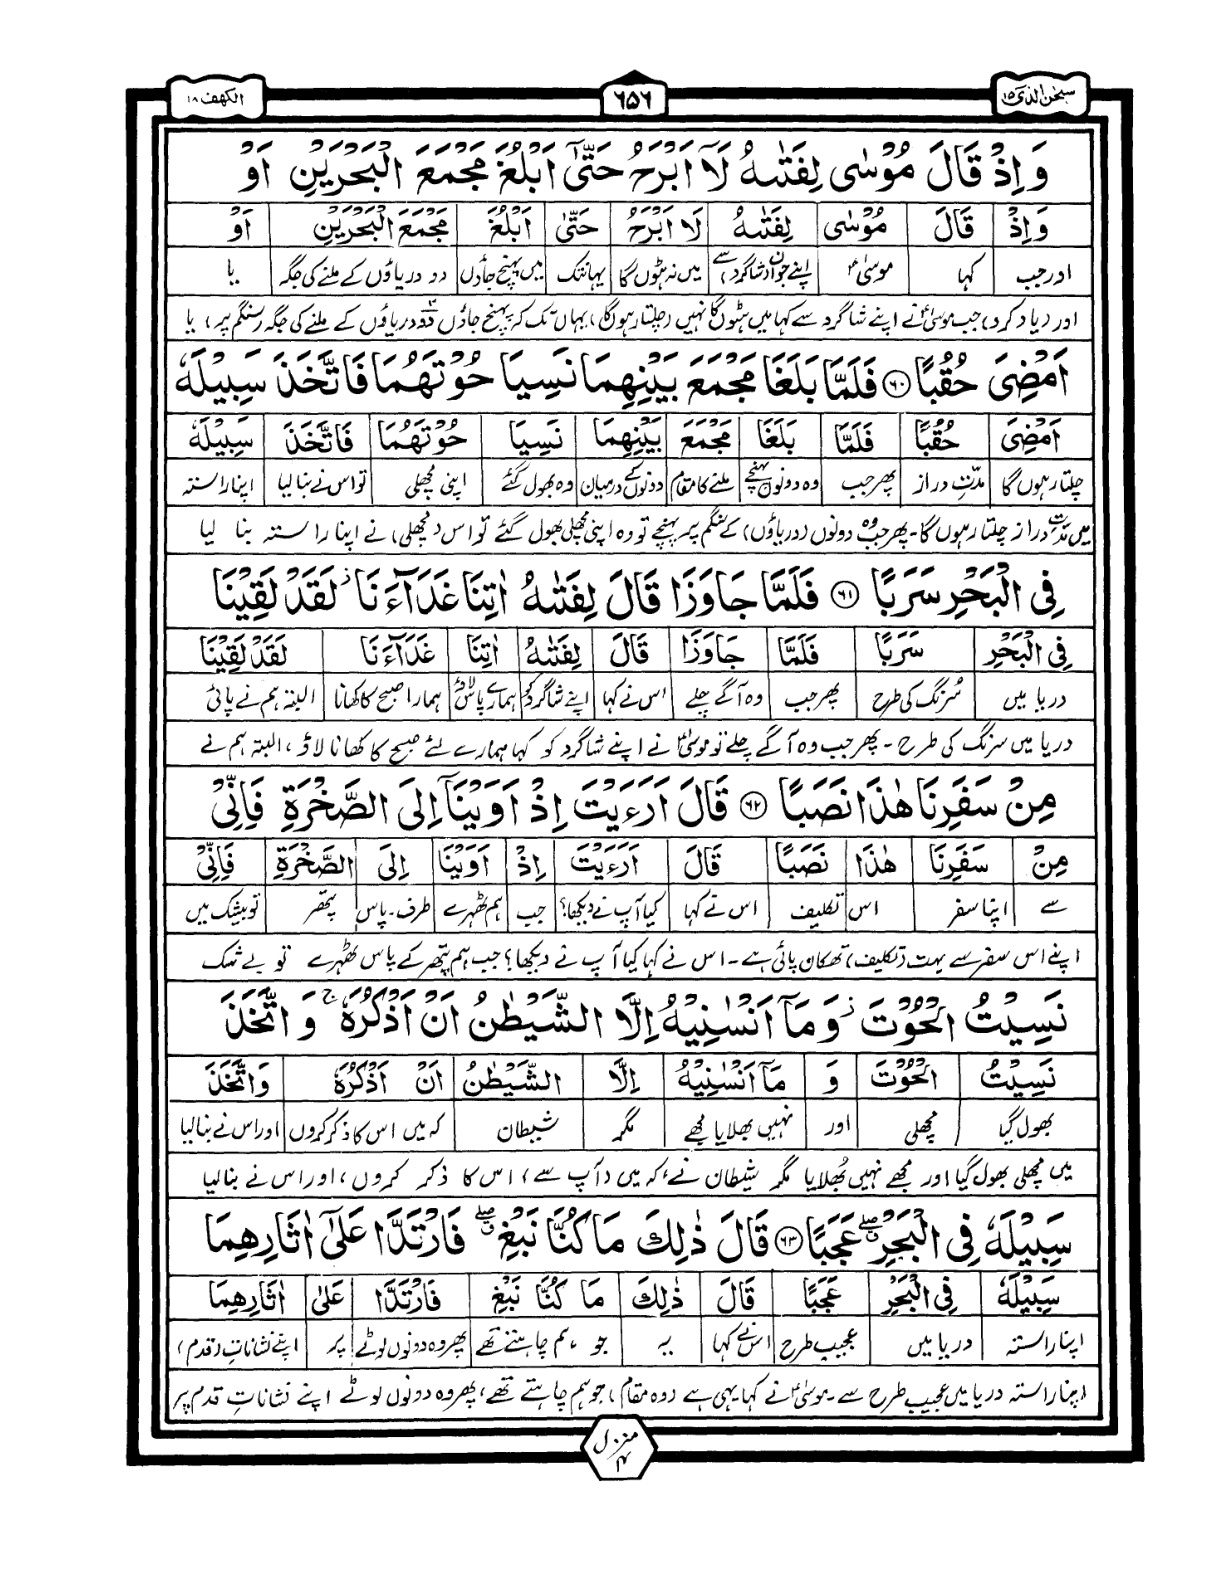 سبحن الذی ۱۵
۶۵۶
الکھف ۱۸
وَ اِذۡ قَالَ مُوۡسٰی لِفَتٰىہُ لَاۤ اَبۡرَحُ حَتّٰۤی اَبۡلُغَ مَجۡمَعَ الۡبَحۡرَیۡنِ اَوۡ
وَ اِذۡ قَالَ مُوۡسٰی لِفَتٰىہُ لَاۤ اَبۡرَحُ حَتّٰۤی اَبۡلُغَ مَجۡمَعَ الۡبَحۡرَیۡنِ اَوۡ
اور جب کہا موسیٰؑ اپنے جوان (شاگرد) سے میں نہ ہٹوں گا یہانتک میں پہنچ جاؤں دو دریاؤں کے ملنے کی جگہ یا
اور (یاد کرو) جب موسیٰؑ نے اپنے شاگرد سے کہا میں ہٹوں گا نہیں (چلتا رہوں گا) یہاں تک کہ پہنچ جاؤں دو دریاؤں کے ملنے کی جگہ (سنگم پر) یا
اَمۡضِیَ حُقُبًا ﴿۶۰﴾ فَلَمَّا بَلَغَا مَجۡمَعَ بَیۡنِہِمَا نَسِیَا حُوۡتَہُمَا فَاتَّخَذَ سَبِیۡلَہٗ
اَمۡضِیَ حُقُبًا فَلَمَّا بَلَغَا مَجۡمَعَ بَیۡنِہِمَا نَسِیَا حُوۡتَہُمَا فَاتَّخَذَ سَبِیۡلَہٗ
چلتا رہوں گا مدّتِ دراز پھر جب وہ دونوں پہنچے ملنے کا مقام دونوں کے درمیان وہ بھول گئے اپنی مچھلی تو اس نے بنا لیا اپنا راستہ
میں مدّتِ دراز چلتا رہوں گا۔ پھر جب وہ دونوں (دریاؤں) کے سنگم پر پہنچے تو وہ اپنی مچھلی بھول گئے تو اس (مچھلی) نے اپنا راستہ بنا لیا
فِی الۡبَحۡرِ سَرَبًا ﴿۶۱﴾ فَلَمَّا جَاوَزَا قَالَ لِفَتٰىہُ اٰتِنَا غَدَآءَنَا ۫ لَقَدۡ لَقِیۡنَا
فِی الۡبَحۡرِ سَرَبًا فَلَمَّا جَاوَزَا قَالَ لِفَتٰىہُ اٰتِنَا غَدَآءَنَا لَقَدۡ لَقِیۡنَا
دریا میں سُرنگ کی طرح پھر جب وہ آگے چلے اس نے کہا اپنے شاگرد کو ہمارے پاس لاؤ ہمارا صبح کا کھانا البتہ ہم نے پائی
دریا میں سرنگ کی طرح۔ پھر جب وہ آگے چلے تو موسیٰؑ نے اپنے شاگرد کو کہا ہمارے لئے صبح کا کھانا لاؤ، البتہ ہم نے
مِنۡ سَفَرِنَا ہٰذَا نَصَبًا ﴿۶۲﴾ قَالَ اَرَءَیۡتَ اِذۡ اَوَیۡنَاۤ اِلَی الصَّخۡرَۃِ فَاِنِّیۡ
مِنۡ سَفَرِنَا ہٰذَا نَصَبًا قَالَ اَرَءَیۡتَ اِذۡ اَوَیۡنَاۤ اِلَی الصَّخۡرَۃِ فَاِنِّیۡ
سے اپنا سفر اس تکلیف اس نے کہا کیا آپ نے دیکھا؟ جب ہم ٹھہرے طرف۔پاس پتھر تو بیشک میں
اپنے اس سفر سے بہت (تکلیف) تھکان پائی ہے۔ اس نے کہا کیا آپ نے دیکھا؟ جب ہم پتھر کے پاس ٹھہرے تو بے شک
نَسِیۡتُ الۡحُوۡتَ ۫ وَ مَاۤ اَنۡسٰنِیۡہُ اِلَّا الشَّیۡطٰنُ اَنۡ اَذۡکُرَہٗ ۚ وَ اتَّخَذَ
نَسِیۡتُ الۡحُوۡتَ وَ مَاۤ اَنۡسٰنِیۡہُ اِلَّا الشَّیۡطٰنُ اَنۡ اَذۡکُرَہٗ وَ اتَّخَذَ
بھول گیا مچھلی اور نہیں بھلایا مجھے مگر شیطان کہ میں اس کا ذکر کروں اور اس نے بنا لیا
میں مچھلی بھول گیا اور مجھے نہیں بُھلایا مگر شیطان نے، کہ میں (آپ سے) اس کا ذکر کروں، اور اس نے بنا لیا
سَبِیۡلَہٗ فِی الۡبَحۡرِ ٭ۖ عَجَبًا ﴿۶۳﴾ قَالَ ذٰلِکَ مَا کُنَّا نَبۡغِ ٭ۖ فَارۡتَدَّا عَلٰۤی اٰثَارِہِمَا
سَبِیۡلَہٗ فِی الۡبَحۡرِ عَجَبًا قَالَ ذٰلِکَ مَا کُنَّا نَبۡغِ فَارۡتَدَّا عَلٰۤی اٰثَارِہِمَا
اپنا راستہ دریا میں عجیب طرح اس نے کہا یہ جو ہم چاہتے تھے پھر وہ دونوں لوٹے پر اپنے نشاناتِ (قدم)
اپنا راستہ دریا میں عجیب طرح سے۔ موسیٰؑ نے کہا یہی ہے (وہ مقام) جو ہم چاہتے تھے، پھر وہ دونوں لوٹے اپنے نشاناتِ قدم پر
منزل ۴